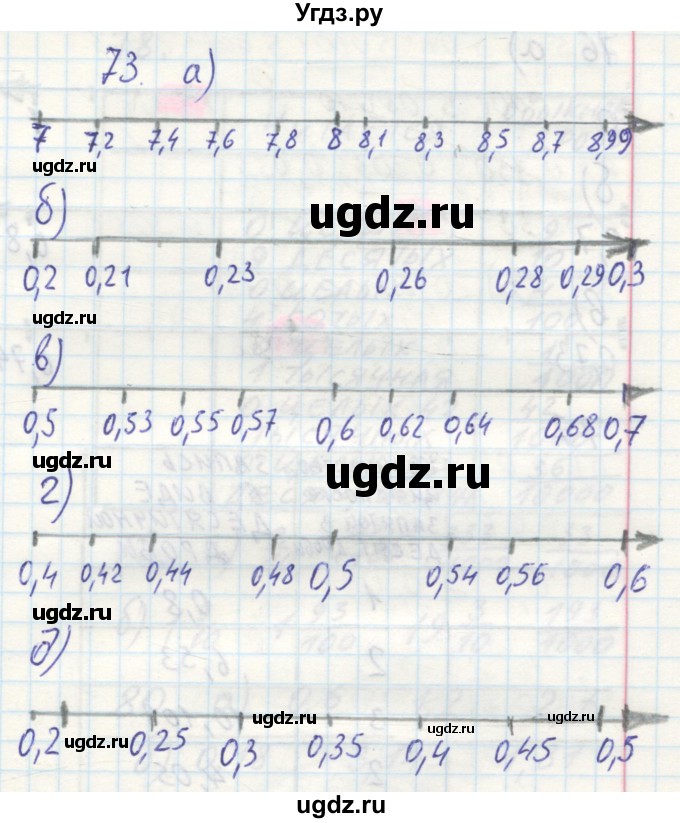 Угдз.ру
73. а)
7 7,2 7,4 7,6 7,8 8 8,1 8,3 8,5 8,7 8,99
ugdz.ru
б)
ugdz.ru
0,2 0,21 0,23 0,26 0,28 0,29 0,3
ugdz.ru
в)
0,5 0,53 0,55 0,57 0,6 0,62 0,64 0,68 0,7
ugdz.ru
ugdz.ru
г)
0,4 0,42 0,44 0,48 0,5 0,54 0,56 0,6
ugdz.ru
д)
ugdz.ru
ugdz.ru
ugdz.ru
0,2 ugdz.ru 0,25 0,3 0,35 0,4 0,45 0,5
ugdz.ru
ugdz.ru